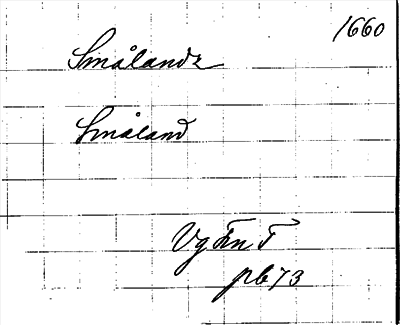 1660
Smålands
Småland
VgFnT
pb 73